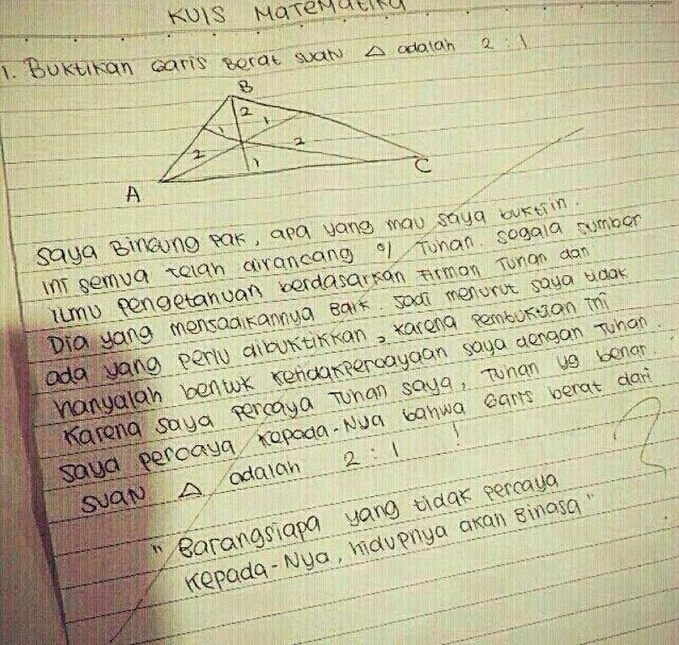 KUIS MATEMATIKA
1. BUKTIKAN GARIS BERAT SUATU △ adalah 2 : 1
B
2
1
1
2
2
1
C
A
saya BINGUNG PAK, apa yang mau saya buktiin.
INI semua telah dirancang o/ TUHAN. segala sumber
ILMU pengetahuan berdasarkan FIRMAN TUHAN dan
DIA yang mensadikannya BAIK. Jadi menurut saya tidak
ada yang perlu dibuktikkan, karena pembuktian ini
hanyalah bentuk ketidakpercayaan saya dengan TUHAN.
Karena saya percaya TUHAN saya, TUHAN yg benar.
saya percaya kepada-Nya bahwa GARIS berat dari
SUATU △ adalah 2 : 1 !
" Barangsiapa yang tidak percaya
kepada-Nya, hidupnya akan BINASA "